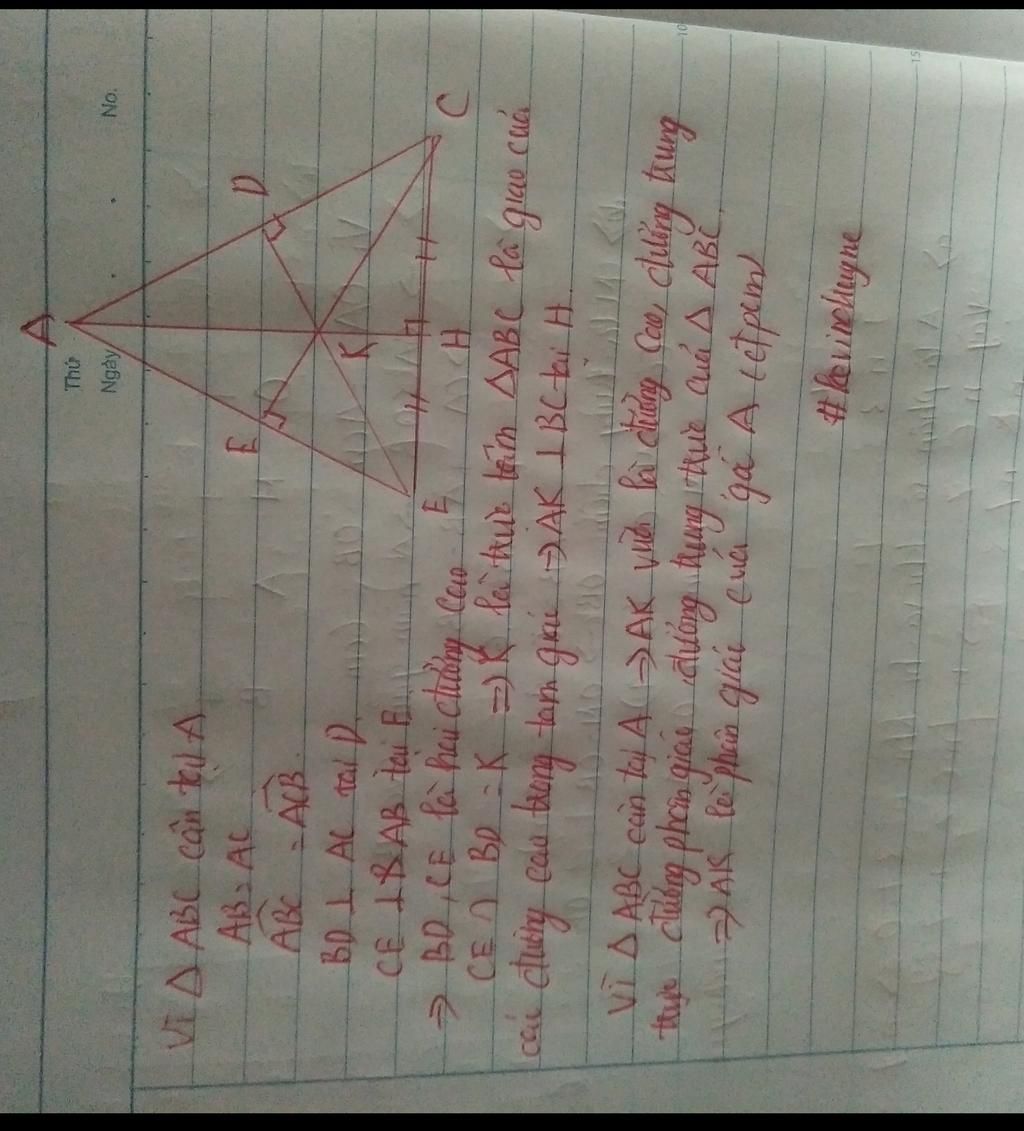 Thứ
Ngày
No.
A
E
D
K
E
H
C
Vì Δ ABC cân tại A
AB = AC
ABC = ACB
BD ⊥ AC tại D
CE ⊥ AB tại E
⇒ BD, CE là hai đường cao
CE ∩ BD = K ⇒ K là trực tâm ΔABC là giao của
các đường cao trong tam giác ⇒ AK ⊥ BC tại H
Vì Δ ABC cân tại A ⇒ AK vừa là đường cao, đường trung
trực đường phân giác, đường trung trực của Δ ABC
⇒ AK là phân giác của góc A (đpcm)
10
15